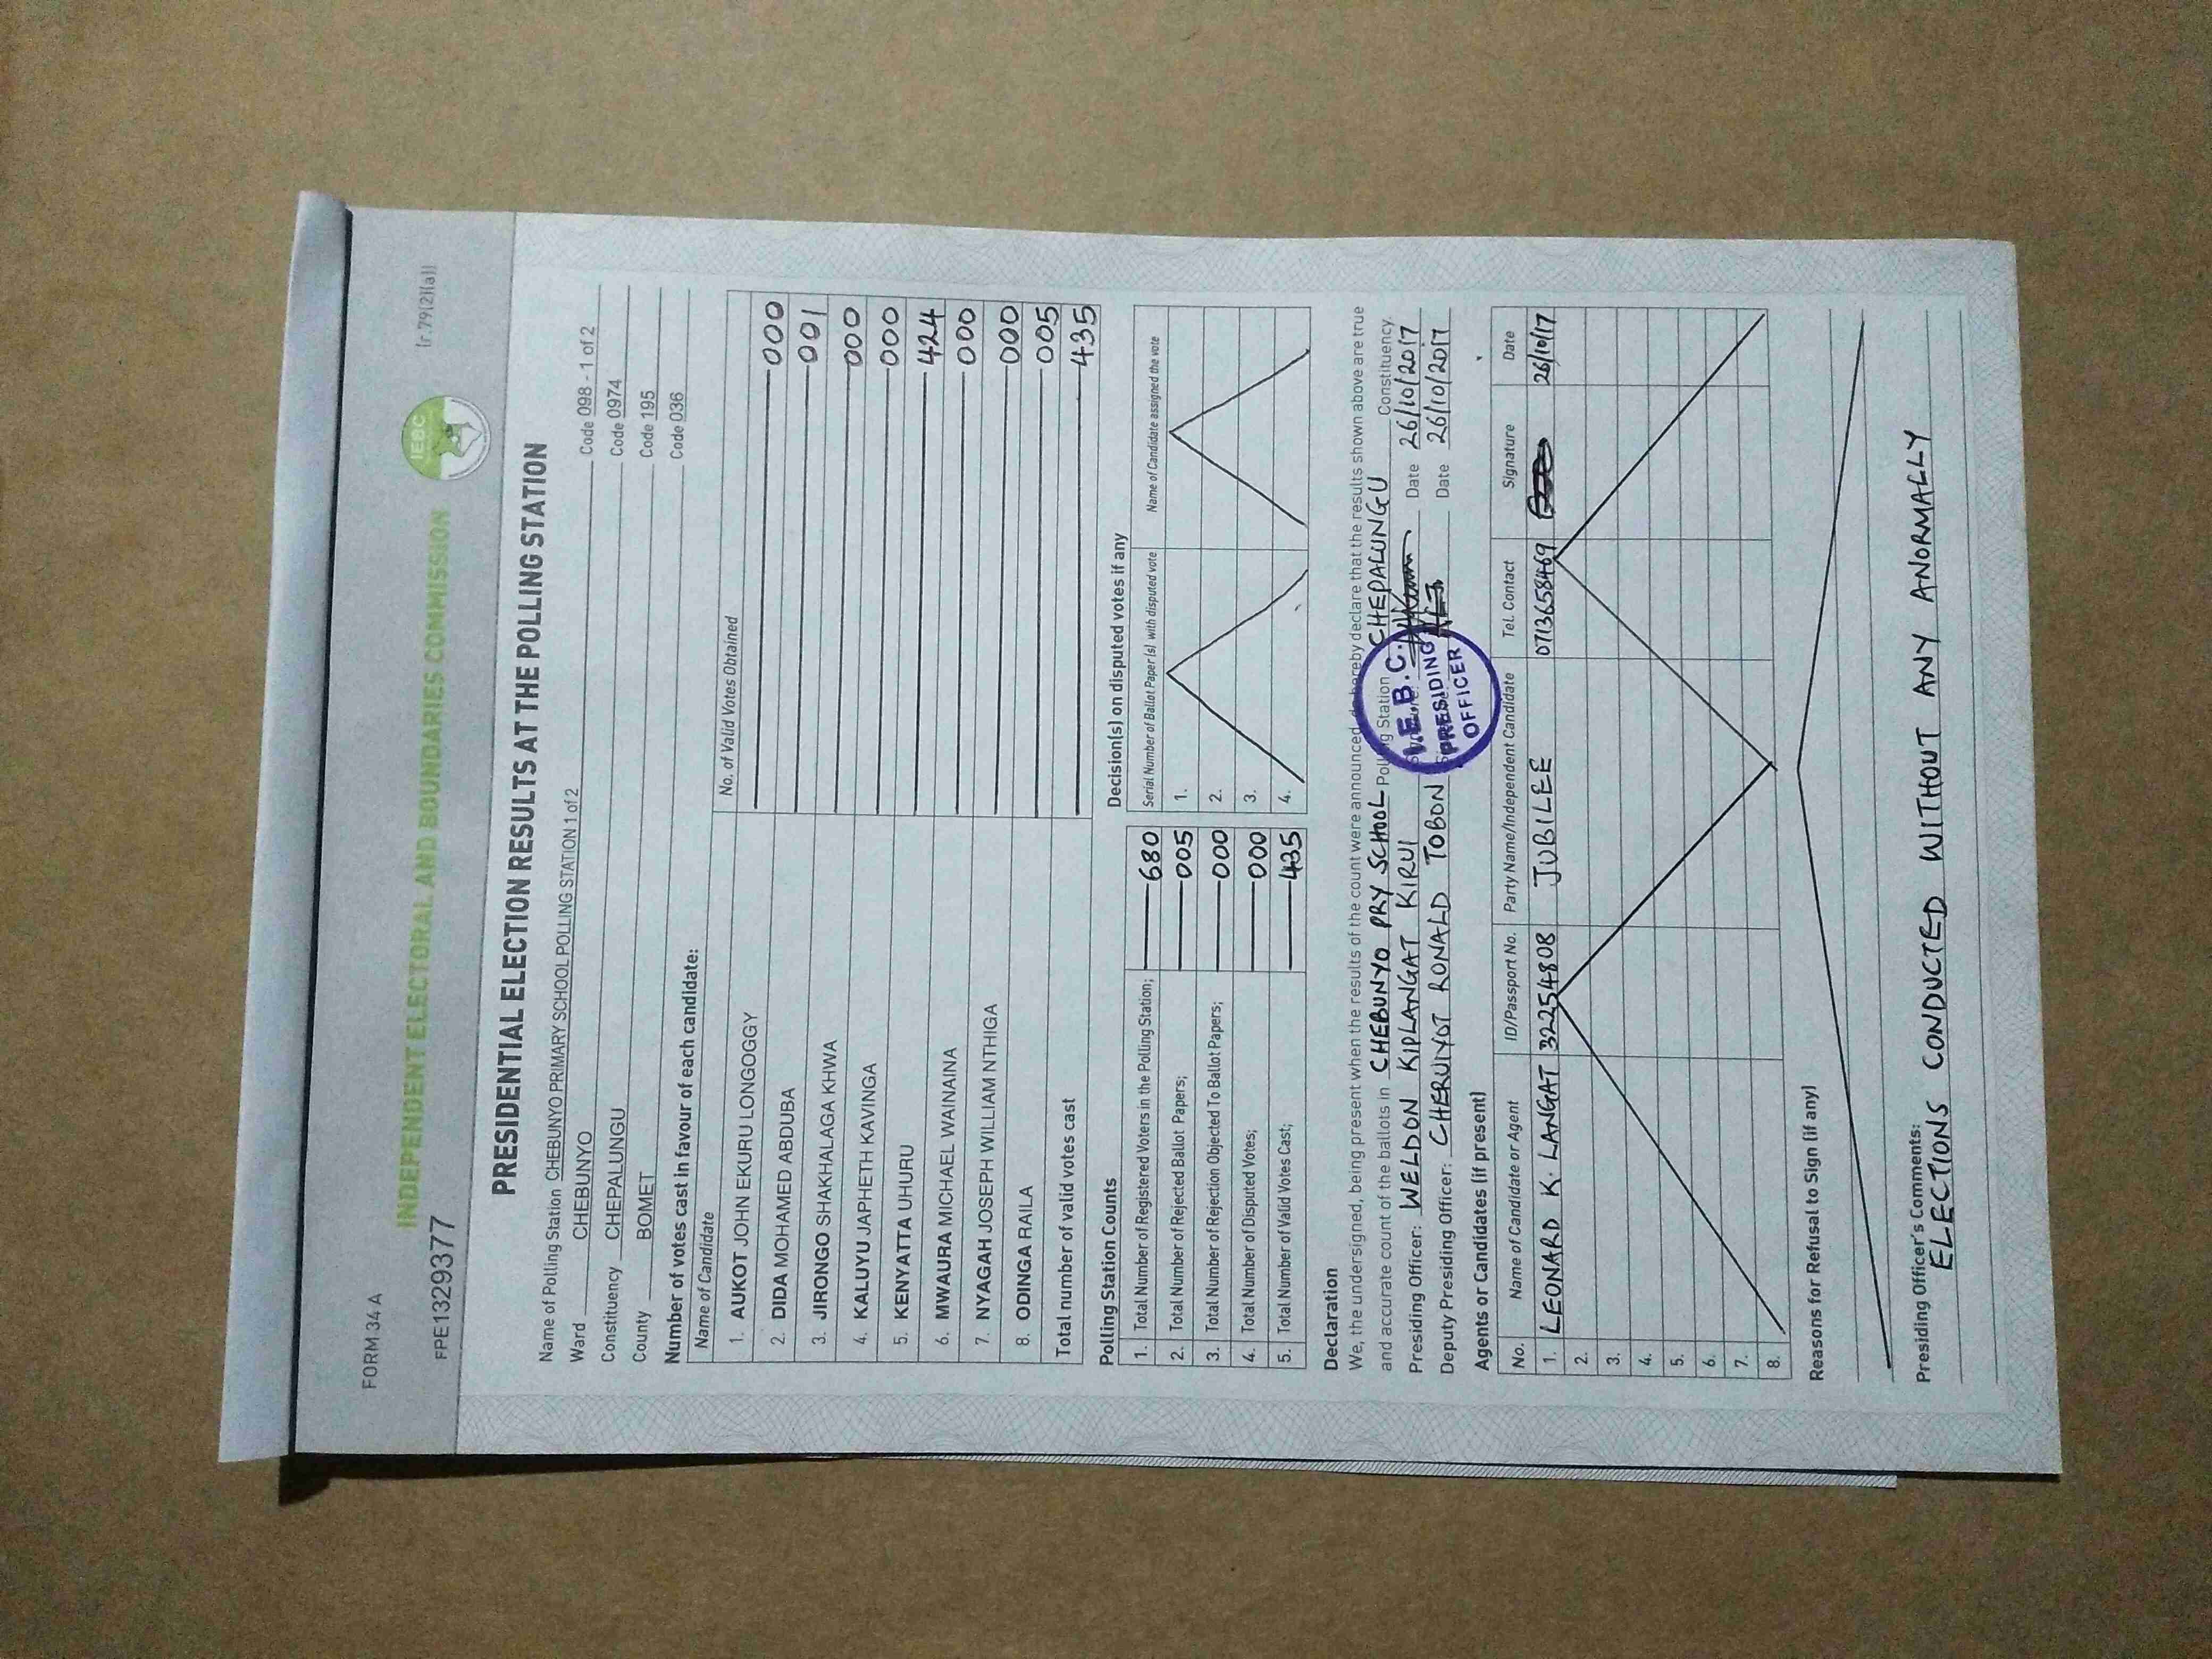 FORM 34 A
[r.79(2)(a)]
INDEPENDENT ELECTORAL AND BOUNDARIES COMMISSION
IEBC
FPE1329377
PRESIDENTIAL ELECTION RESULTS AT THE POLLING STATION
Name of Polling Station CHEBUNYO PRIMARY SCHOOL POLLING STATION 1 of 2 Code 098 - 1 of 2
Ward CHEBUNYO Code 0974
Constituency CHEPALUNGU Code 195
County BOMET Code 036
Number of votes cast in favour of each candidate:
Name of Candidate No. of Valid Votes Obtained
1. AUKOT JOHN EKURU LONGOGGY 000
2. DIDA MOHAMED ABDUBA 001
3. JIRONGO SHAKHALAGA KHWA 000
4. KALUYU JAPHETH KAVINGA 000
5. KENYATTA UHURU 424
6. MWAURA MICHAEL WAINAINA 000
7. NYAGAH JOSEPH WILLIAM NTHIGA 000
8. ODINGA RAILA 005
Total number of valid votes cast 435
Polling Station Counts
1. Total Number of Registered Voters in the Polling Station; 680
2. Total Number of Rejected Ballot Papers; 005
3. Total Number of Rejection Objected To Ballot Papers; 000
4. Total Number of Disputed Votes; 000
5. Total Number of Valid Votes Cast; 435
Decision(s) on disputed votes if any
Serial Number of Ballot Paper(s) with disputed vote Name of Candidate assigned the vote
1.
2.
3.
4.
Declaration
We, the undersigned, being present when the results of the count were announced, do hereby declare that the results shown above are true
and accurate count of the ballots in CHEBUNYO PRY SCHOOL Polling Station CHEPALUNGU Constituency.
Presiding Officer: WELDON KIPLANGAT KIRUI Date 26/10/2017
Deputy Presiding Officer: CHERUIYOT RONALD TOBON Date 26/10/2017
I.E.B.C.
PRESIDING
OFFICER
Agents or Candidates (if present)
No. Name of Candidate or Agent ID/Passport No. Party Name/Independent Candidate Tel. Contact Signature Date
1. LEONARD K. LANGAT 32254808 JUBILEE 0713658469 26/10/17
2.
3.
4.
5.
6.
7.
8.
Reasons for Refusal to Sign (if any)
Presiding Officer's Comments:
ELECTIONS CONDUCTED WITHOUT ANY ANORMALLY